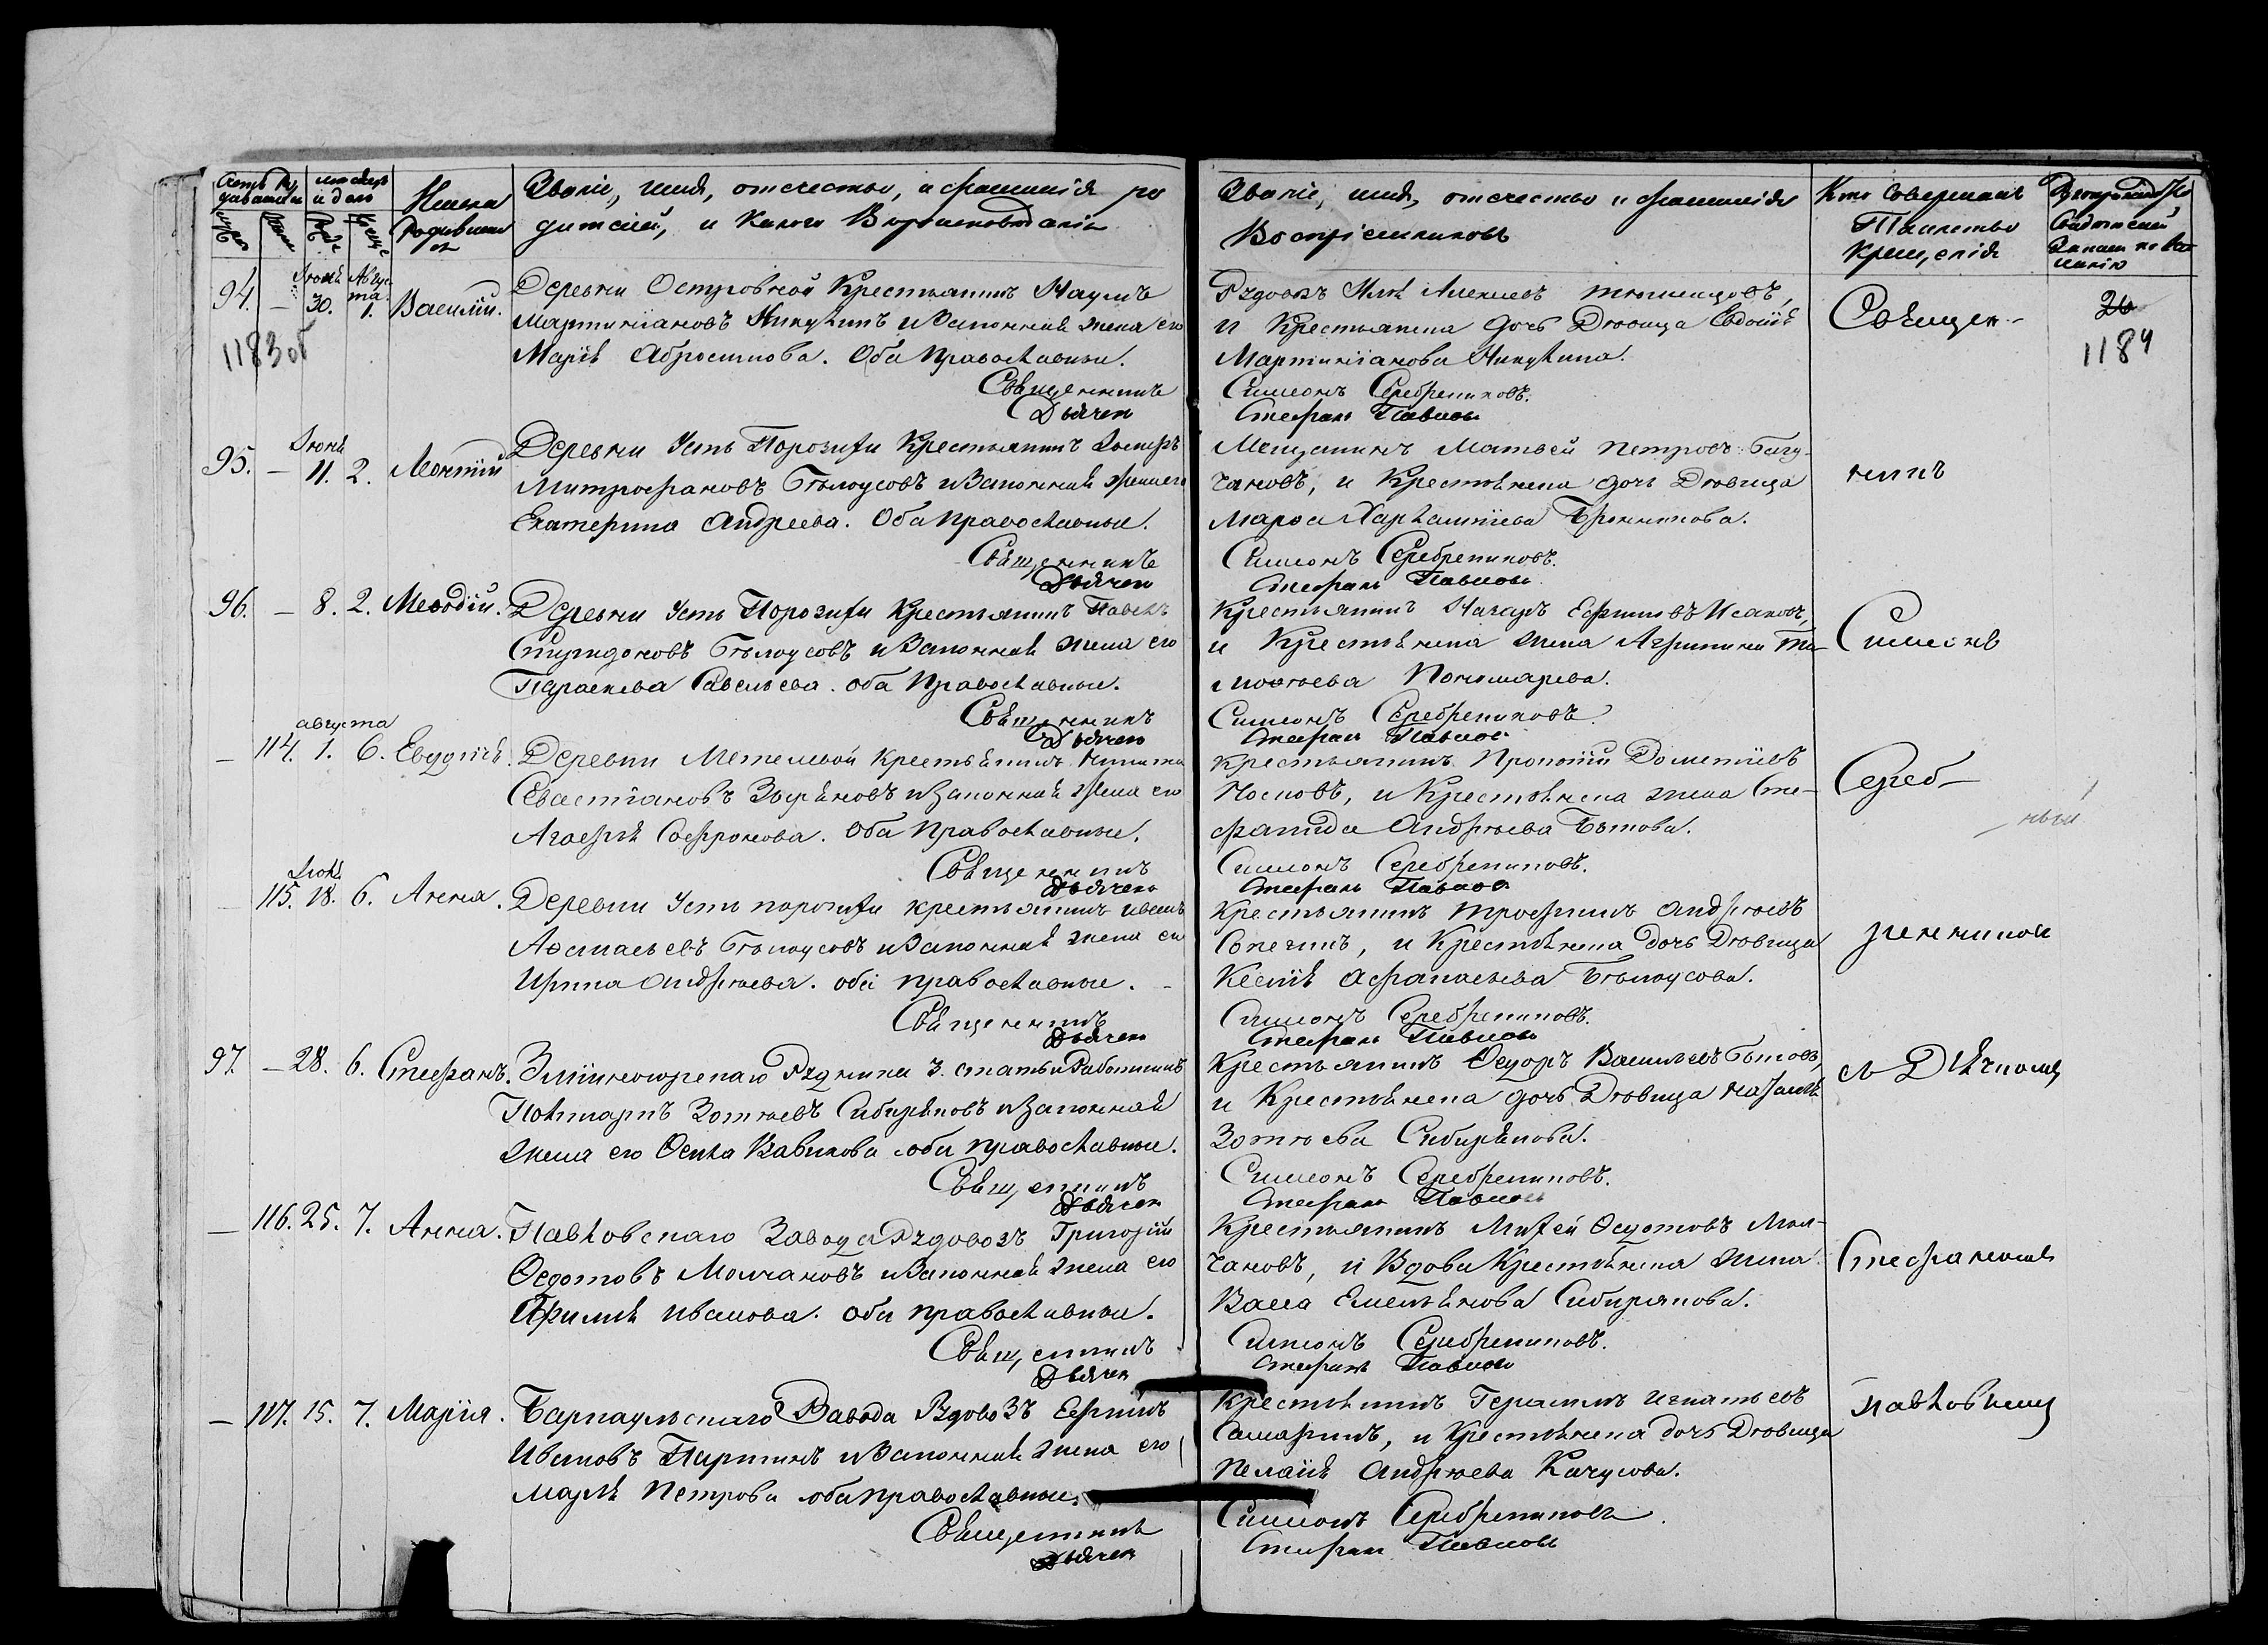 Званіе, имя, отчество, и фамилія ро
дителей, и какого вѣроисповѣданія
Званіе, имя, отчество и фамилія
Воспріемниковъ
Кто совершалъ
Таинство
крещенія
94. — Іюля 30. Августа 1. Василій.
1183об
Деревни Островной Крестьянинъ Наумъ
Мартиніановъ Никулинъ и законная жена его
Марія Абросимова. Оба православные.
Священникъ
Дьячек
Рудовозъ Илья Алексѣевъ
и крестьянская дочь Дѣвица Евдокія
Мартиніанова Никулина.
Симеонъ Серебрениковъ.
Стефанъ Павловъ
Священ-
26
1184
95. — Іюля 11. 2. Леонтій
Деревни Усть Порозихи Крестьянинъ Іосифъ
Митрофановъ Бѣлоусовъ и законная жена его
Екатерина Андреева. Оба православные.
Священникъ
Дьячек
Мещанинъ Матвей Петровъ
и Крестьянска дочь Дѣвица
Симеонъ Серебрениковъ.
Стефанъ Павловъ
никъ
96. — 8. 2. Меѳодій.
Деревни Усть Порозихи Крестьянинъ Павелъ
Спиридоновъ Бѣлоусовъ и законная жена его
Параскева Савельева. оба православные.
Священникъ
Дьячек
Крестьянинъ Назаръ Ефимовъ Исаковъ,
и Крестьянска жена Агрипина Ти-
моѳеева Пономарева.
Симеонъ Серебрениковъ
Стефанъ Павловъ
Симеонъ
августа
— 114. 1. 6. Евдокія.
Деревни Метелевой Крестьянинъ Никита
Севастіановъ Зыряновъ и законная жена его
Агафія Софронова. Оба православные.
Священникъ
Дьячек
Крестьянинъ Прокопій Дометіевъ
Носковъ, и Крестьянска жена Сте-
фанида Андреева Бытова.
Симеонъ Серебрениковъ.
Стефанъ Павловъ
Сереб-
Іюля
115. 18. 6. Анна.
Деревни Усть порозихи крестьянинъ
Аѳанасьевъ Бѣлоусовъ и законная жена его
Ирина Андреева. оба православные.
Священникъ
Дьячек
Крестьянинъ Трофимъ Андреевъ
и Крестьянска дочь Дѣвица
Ксенія Афанасьева Бѣлоусова.
Симеонъ Серебрениковъ.
Стефанъ Павловъ
рениковъ
97. — 28. 6. Стефанъ.
Зміиногорскаго Рудника 3. статьи Работникъ
Поликарпъ Зотѣевъ Сибиряковъ и законная
жена его Ѳекла Вавилова оба православные.
Священникъ
Дьячек
Крестьянинъ Ѳедоръ Васильевъ Бытовъ,
и Крестьянска дочь Дѣвица Наталья
Зотѣева Сибирякова.
Симеонъ Серебрениковъ.
Стефанъ Павловъ
съ Дьячкомъ
— 116. 25. 7. Анна.
Павловскаго Завода Рудовозъ Григорій
Ѳедотовъ Молчановъ и законная жена его
Ефимія Иванова. Оба православные.
Священникъ
Дьячек
Крестьянинъ Михей Ѳедотовъ Мол-
чановъ, и Вдова Крестьянска жена
Васса Емельянова Сибирякова.
Симеонъ Серебрениковъ.
Стефанъ Павловъ
Стефаномъ
— 117. 15. 7. Марія.
Барнаульскаго Завода Рудовозъ Ефимъ
Ивановъ Паршинъ и законная жена его
Марья Петрова оба православные.
Священникъ
Дьячек
Крестьянинъ Герасимъ Игнатьевъ
Самаринъ, и Крестьянска дочь Дѣвица
Пелагія Андреева Качусова.
Симеонъ Серебрениковъ.
Стефанъ Павловъ
Павловымъ